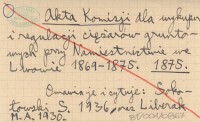 Akta Komisji dla wykupu
i regulacji ciężarów grunto-
wych przy Namiestnictwie we
Lwowie 1869-1875. 1875.
Omawia i cytuje: Soko-
łowski S. 1936 oraz Liberak
M. A. 1930.